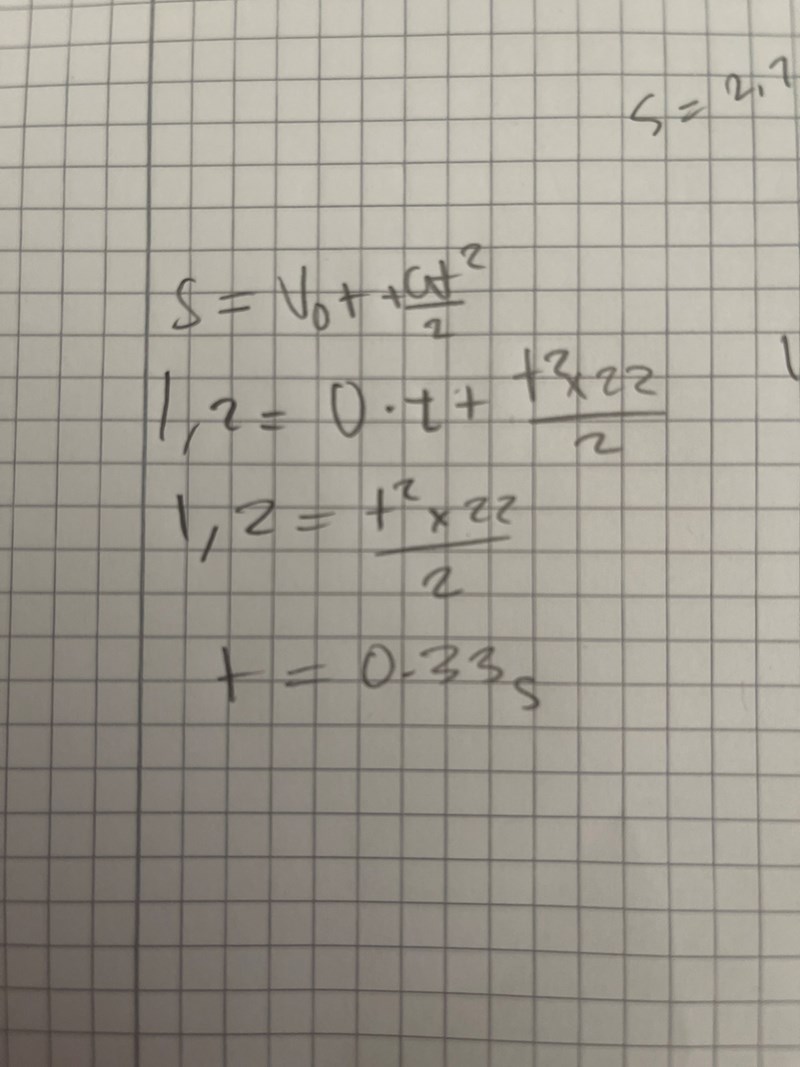 S = 2,7
S = V₀t + at²/2
1,2 = 0 · t + t² x 22/2
1,2 = t² x 22/2
t = 0.33s